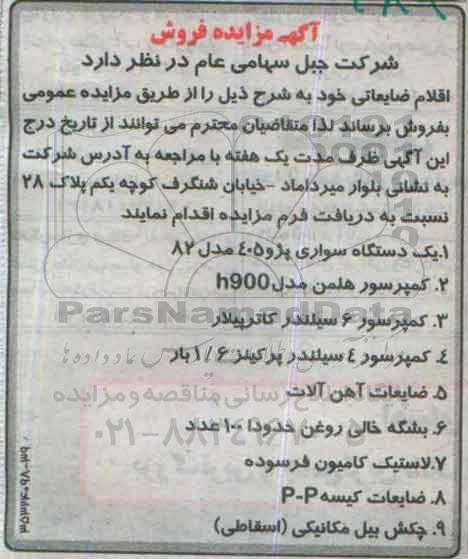 آگهی مزایده فروش
شرکت جبل سهامی عام در نظر دارد
اقلام ضایعاتی خود به شرح ذیل را از طریق مزایده عمومی
بفروش برساند لذا متقاضیان محترم می توانند از تاریخ درج
این آگهی ظرف مدت یک هفته با مراجعه به آدرس شرکت
به نشانی بلوار میرداماد -خیابان شنگرف کوچه یکم پلاک ۲۸
نسبت به دریافت فرم مزایده اقدام نمایند
۱.یک دستگاه سواری پژو۴۰۵ مدل ۸۲
۲. کمپرسور هلمن مدل h900
۳. کمپرسور ۶ سیلندر کاترپیلار
۴. کمپرسور ٤ سیلندر پرکینز ۱/۶ بار
۵. ضایعات آهن آلات
۶. بشگه خالی روغن حدودا ۱۰۰ عدد
۷.لاستیک کامیون فرسوده
۸. ضایعات کیسه P-P
۹. چکش بیل مکانیکی (اسقاطی)
ParsNamadData
۰۲۱-۸۸۳۴۹۶